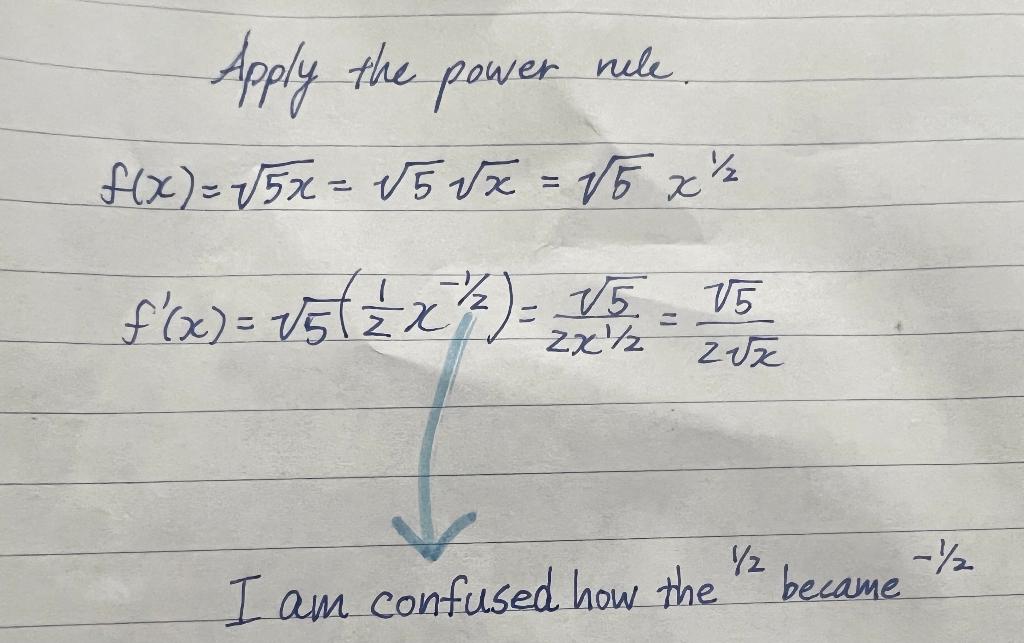 Apply the power rule.
f(x) = √5x = √5 √x = √5 x^1/2
f'(x) = √5(1/2 x^-1/2) = √5/2x^1/2 = √5/2√x
I am confused how the ^1/2 became ^-1/2